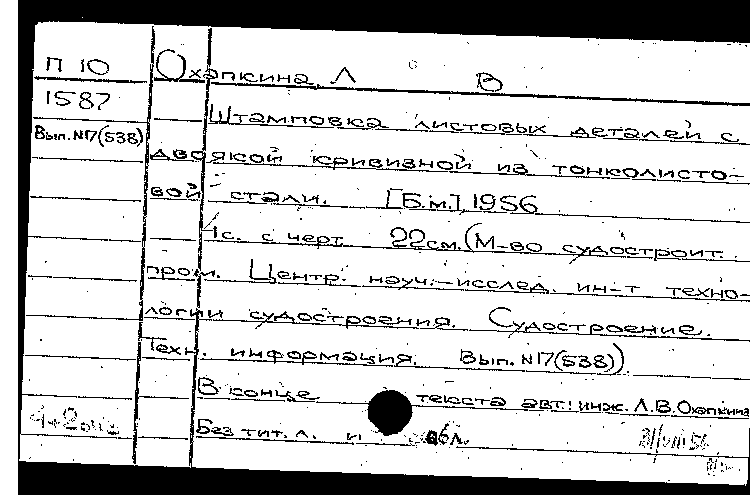 П 10 Охапкина, Л В
1587 Штамповка листовых деталей с
Вып.№17(538) двоякой кривизной из тонколисто-
вой стали. [Б.м.], 1956
4с. с черт. 22см. (М-во судостроит.
пром. Центр. науч.-исслед. ин-т техно-
логии судостроения. Судостроение.
Техн. информация. Вып. №17(538))
В конце текста авт.: инж. Л.В.Охапкина
Без тит. л. и обл.